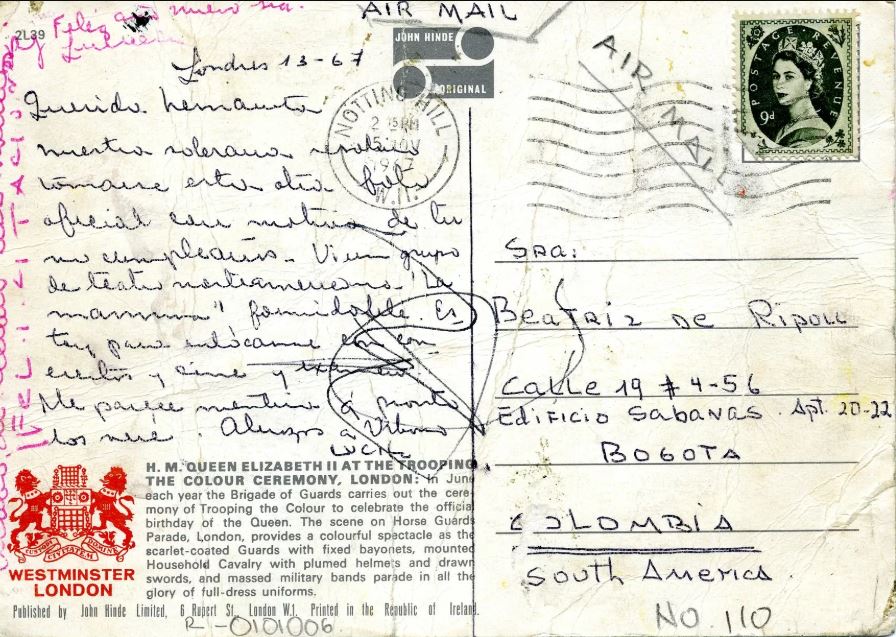 2L39
Feliz año nuevo
AIR MAIL
JOHN HINDE
ORIGINAL
Londres 13-67
Querida hermanita
nuestra soberana
esta
oficial con motivo de tu
no cumpleaños. Vi un grupo
de teatro norteamericano "La
mamma" formidable. Es
toy para
y cine y
Me parece mentira q pronto
los veré. Abrazos a
NOTTING HILL
2 15 PM
NOV
1967
W.11.
AIR MAIL
POSTAGE REVENUE
9d
Sra:
Beatriz de Ripoll
Calle 19 # 4-56
Edificio Sabanas. Apt. 20-22
Bogota
COLOMBIA
South America.
No. 110
FELICITACIONES
WESTMINSTER
LONDON
H. M. QUEEN ELIZABETH II AT THE TROOPING
THE COLOUR CEREMONY, LONDON: In June
each year the Brigade of Guards carries out the cere-
mony of Trooping the Colour to celebrate the official
birthday of the Queen. The scene on Horse Guards
Parade, London, provides a colourful spectacle as the
scarlet-coated Guards with fixed bayonets, mounted
Household Cavalry with plumed helmets and drawn
swords, and massed military bands parade in all the
glory of full-dress uniforms.
Published by John Hinde Limited, 6 Rupert St, London W.1. Printed in the Republic of Ireland.
R-0101006